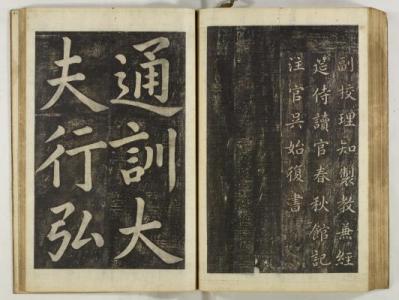 副校理知製教兼經
筵侍讀官春秋館記
注官吳始復書
通訓大
夫行弘